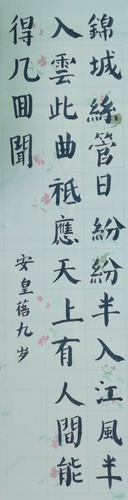 錦城絲管日紛紛半入江風半
入雲此曲祗應天上有人間能
得几囬聞
安皇蓓九岁